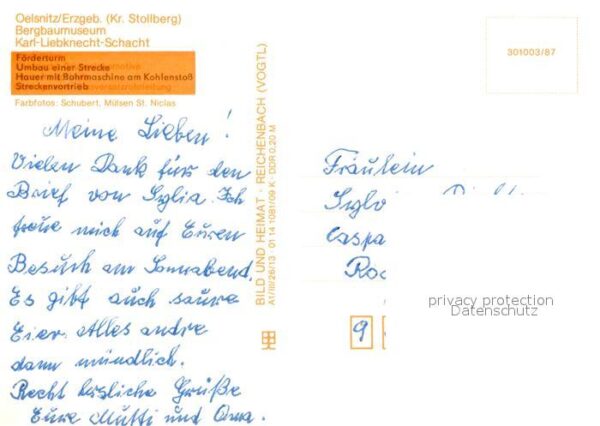 Oelsnitz/Erzgeb. (Kr. Stollberg)
Bergbaumuseum
Karl-Liebknecht-Schacht
Förderturm
Umbau einer Strecke
Hauer mit Bohrmaschine am Kohlenstoß
Streckenvortrieb
Farbfotos: Schubert, Mülsen St. Niclas
Meine Lieben!
Vielen Dank für den
Brief von Sylvia. Ich
freue mich auf Euren
Besuch am Sonnabend.
Es gibt auch saure
Eier. Alles andre
dann mündlich.
Recht herzliche Grüße
Eure Mutti und Oma.
BILD UND HEIMAT · REICHENBACH (VOGTL)
A1/III/26/13 01 14 1081/09 K · DDR 0,20 M
301003/87
Fräulein
Sylv
Caspa
Ro
9
privacy protection
Datenschutz